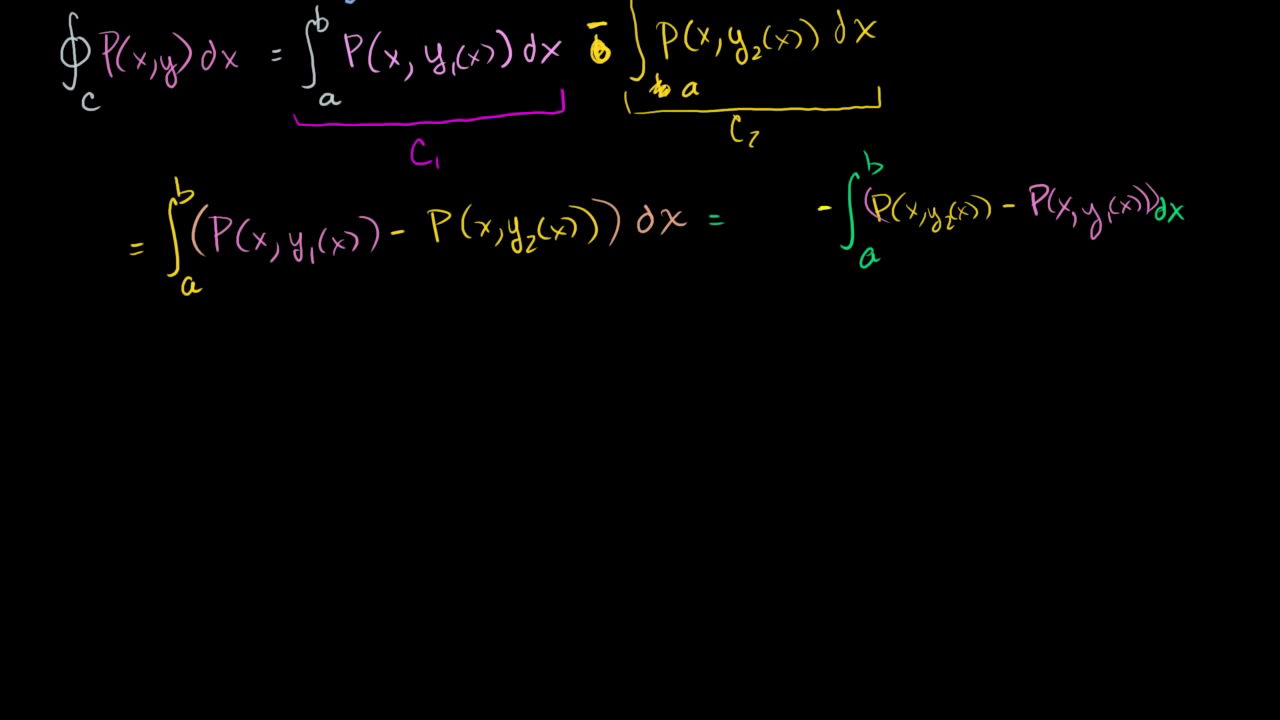 ∮_C P(x,y) dx = ∫_a^b P(x, y₁(x)) dx - ∫_a P(x, y₂(x)) dx
C₁ C₂
= ∫_a^b (P(x, y₁(x)) - P(x, y₂(x))) dx = - ∫_a^b (P(x, y₂(x)) - P(x, y₁(x))) dx